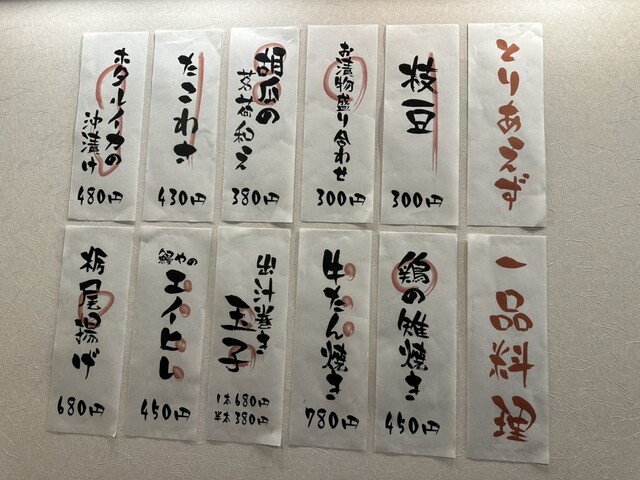 とりあえず
枝豆
300円
お漬物盛り合わせ
300円
胡瓜の
茗荷和え
380円
たこわさ
430円
ホタルイカの
沖漬け
480円
一品料理
鶏の雉焼き
450円
牛たん焼き
780円
出汁巻き
玉子
1本680円
半本380円
エイヒレ
450円
栃尾揚げ
680円